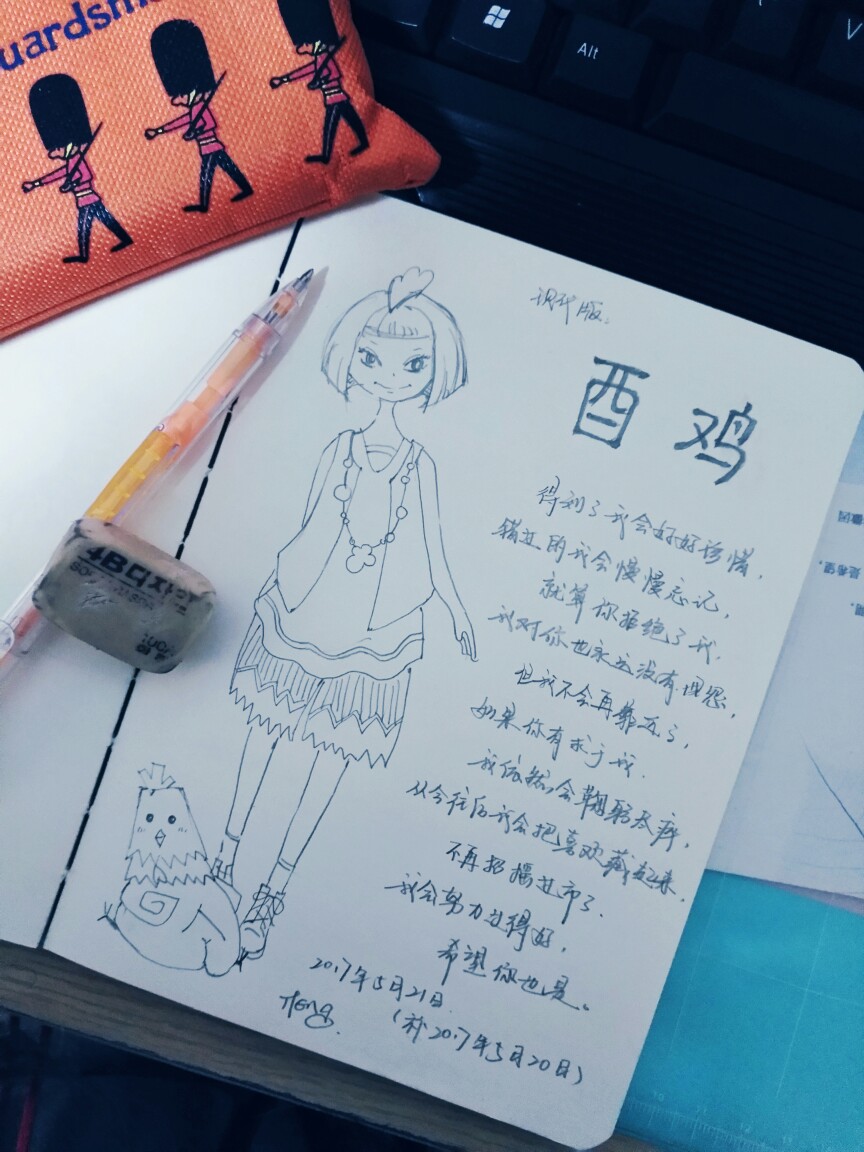 uardsm
Alt
V
现代版:
酉 鸡
得到了我会好好珍惜,
错过的我会慢慢忘记,
就算你拒绝了我.
我对你也永远没有埋怨,
但我不会再靠近了,
如果你有求于我.
我依然会鞠躬尽瘁,
从今往后我会把喜欢藏起来.
不再招摇过市了.
我会努力过得好,
希望你也是。
2017年5月21日.
(补2017年5月20日)
4B
是希望,